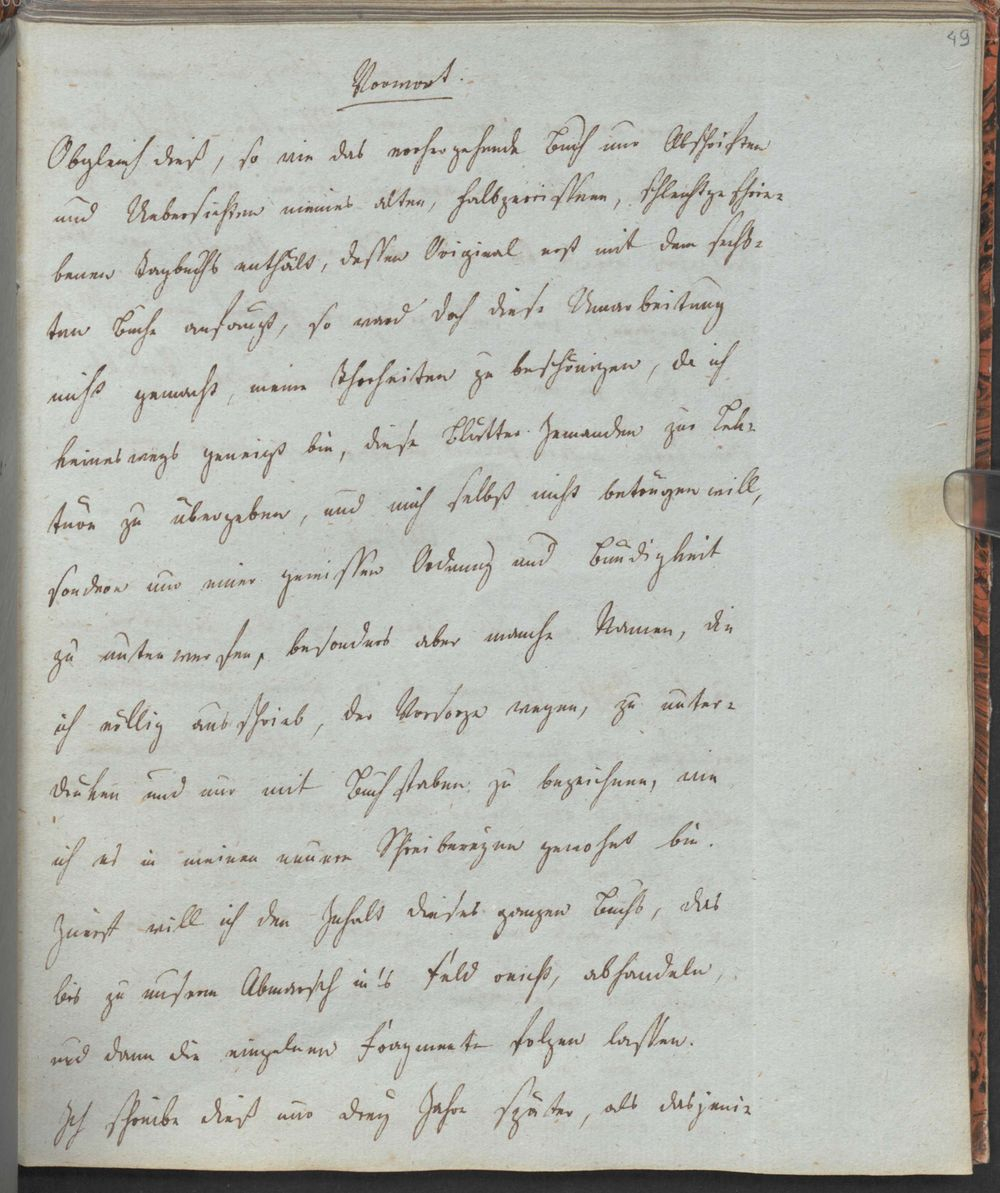 49
Vorwort.
Obgleich dieß, so wie das vorhergehende Buch nur Abschriften
und Uebersichten meines alten, halbzerrissenen, schlechtgeschrie-
benen Tagbuchs enthält, dessen Original erst mit dem sechs-
ten Buche anfängt, so ward doch diese Umarbeitung
nicht gemacht, meine Thorheiten zu beschönigen, da ich
keineswegs geneigt bin, diese Blätter Jemanden zur Lek-
türe zu übergeben, und mich selbst nicht betrügen will,
sondern nur einer gewissen Ordnung und Bündigkeit
zu unterwerfen, besonders aber manche Namen, die
ich völlig ausschrieb, der Vorsorge wegen, zu unter-
drüken und nur mit Buchstaben zu bezeichnen, wie
ich es in meinen neuern Schreibereyen gewohnt bin.
Zuerst will ich den Inhalt dieses ganzen Buchs, das
bis zu unserm Abmarsch in's Feld reicht, abhandeln,
und dann die einzelnen Fragmente folgen lassen.
Ich schreibe dieß nur drey Jahre später, als dasjeni-